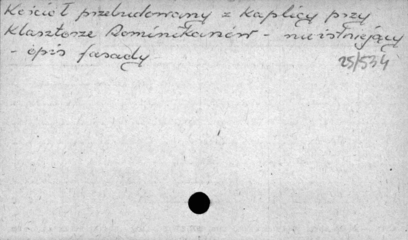 Kościół przebudowany z kaplicy przy
Klasztorze Dominikanów - nie istniejący
- opis fasady
25/534